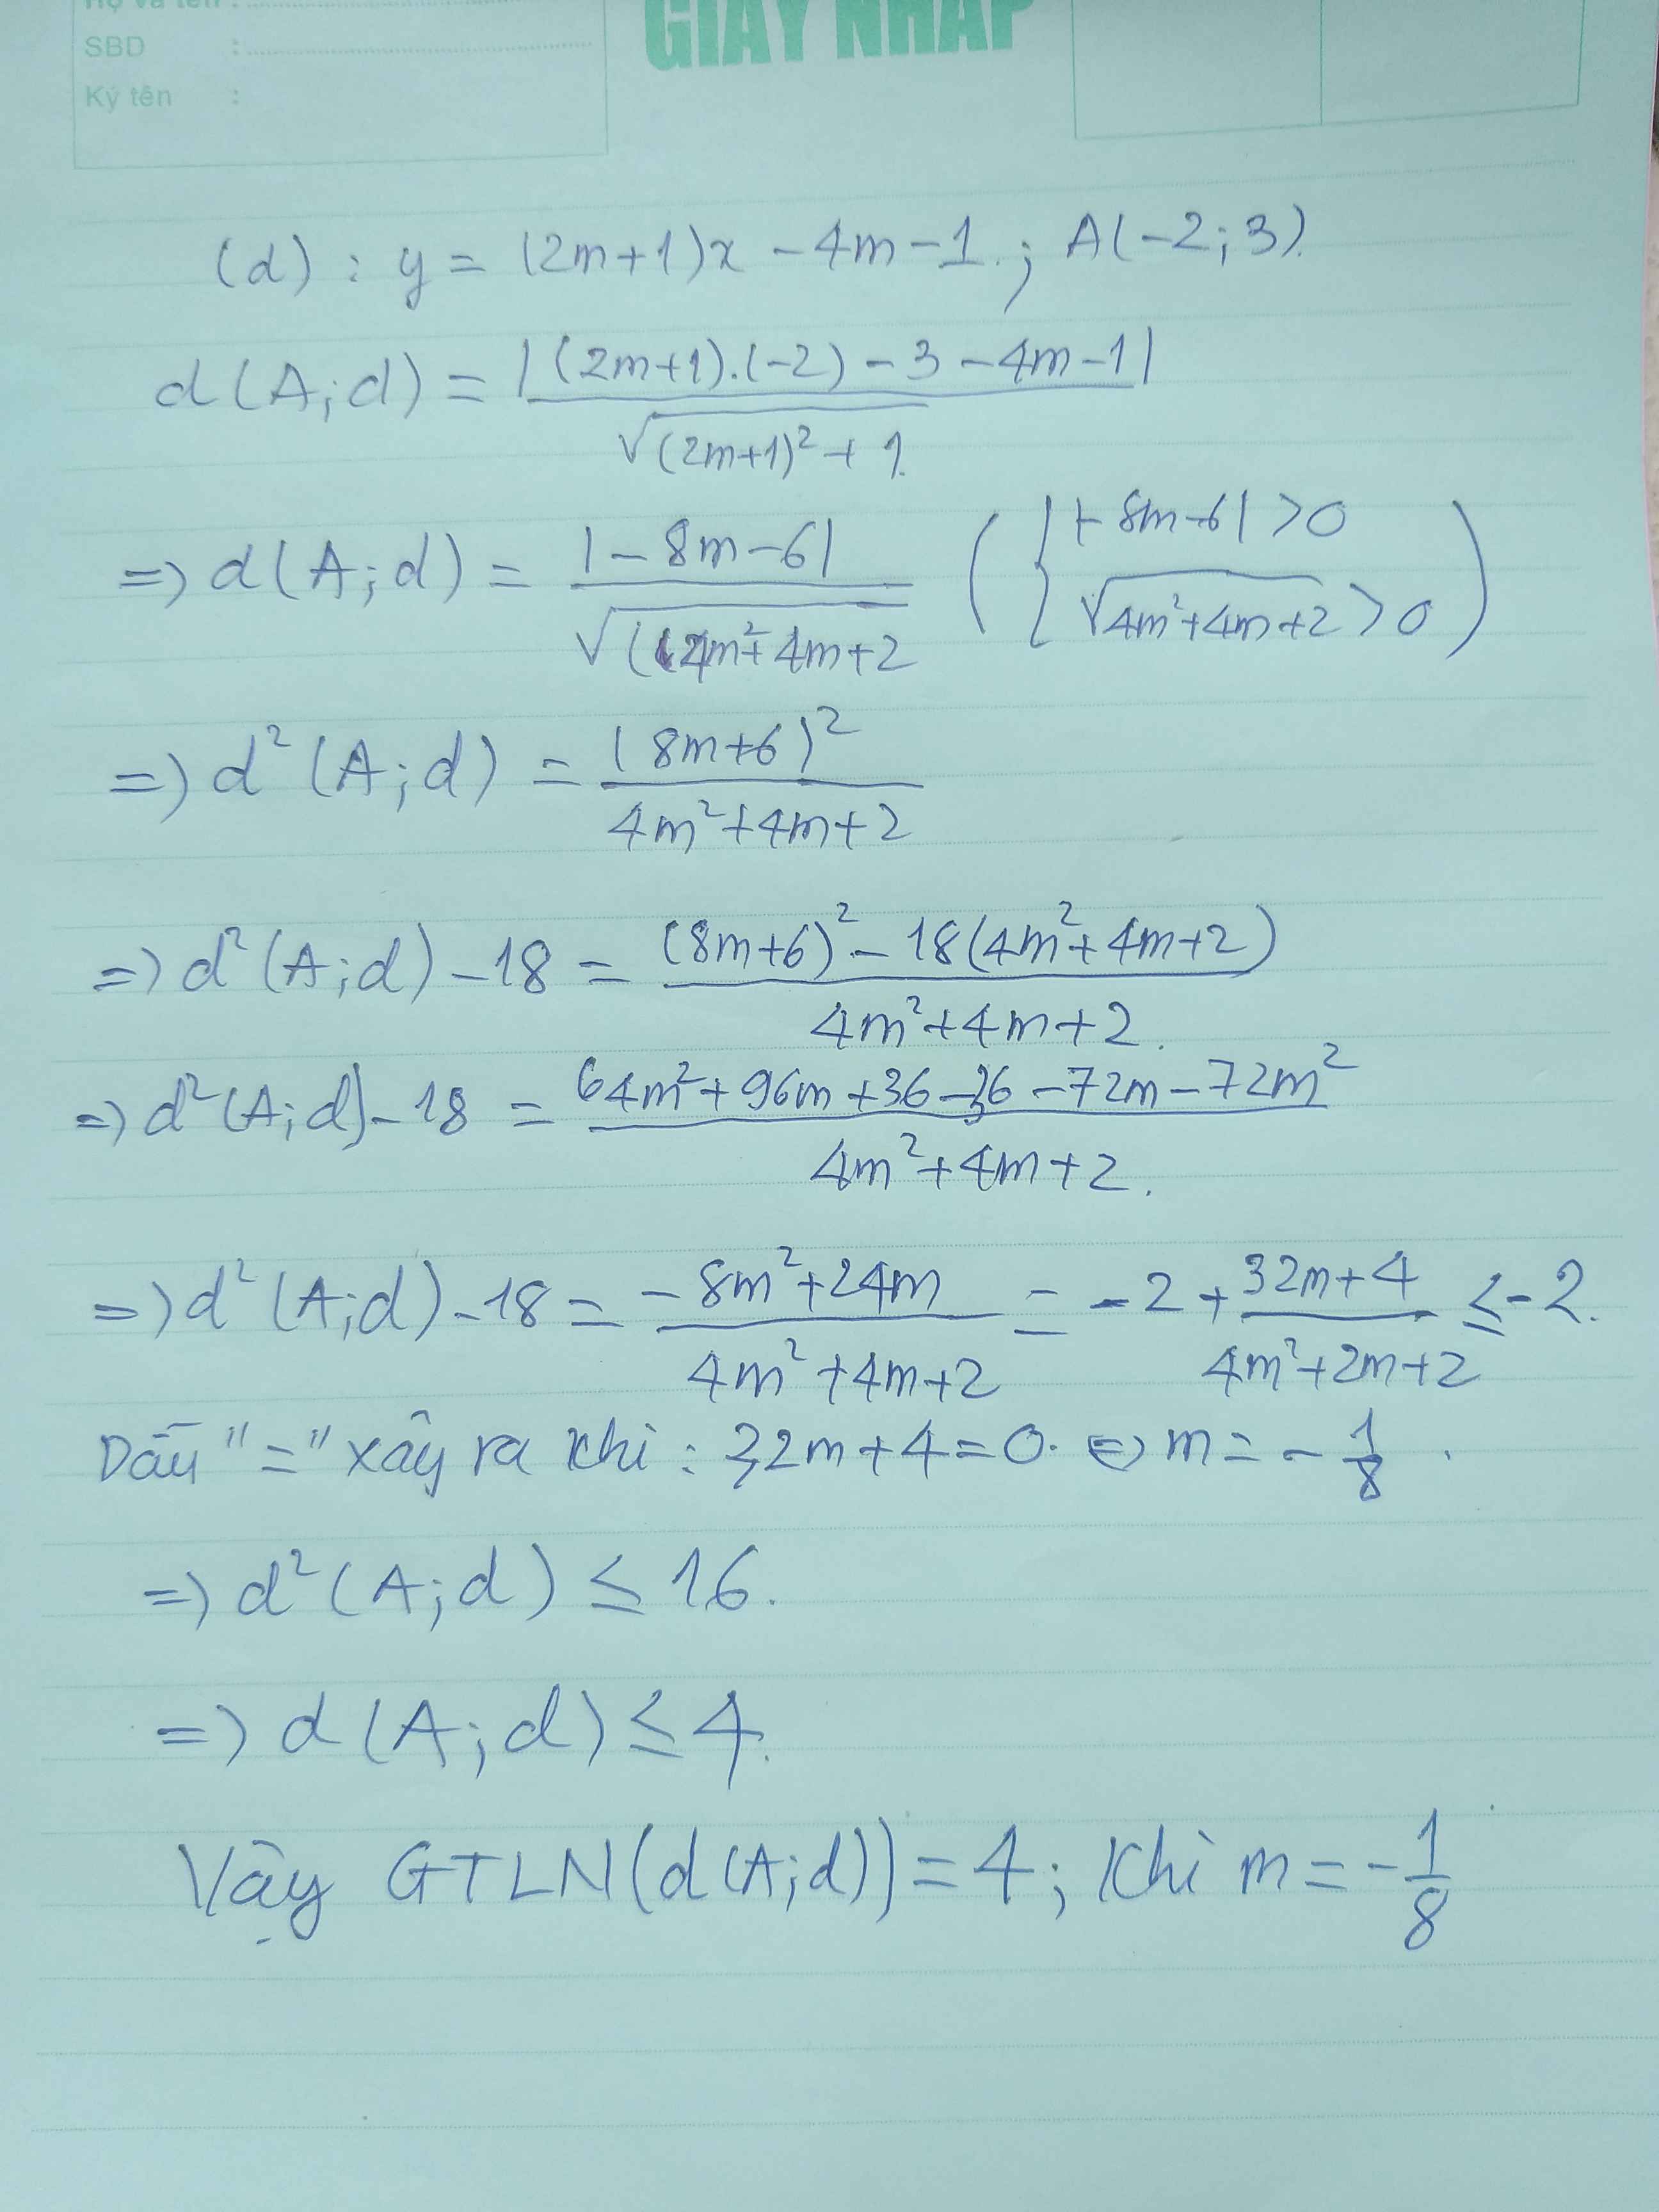 Họ và tên :
SBD :
Ký tên :
GIẤY NHÁP
(d) : y = (2m+1)x - 4m - 1. ; A(-2; 3).
d(A;d) = |(2m+1).(-2) - 3 - 4m - 1| / √((2m+1)² + 1.
=> d(A;d) = |-8m-6| / √(4m²+4m+2 ( { |-8m-6| > 0 ; √(4m²+4m+2) > 0 )
=> d²(A;d) = (8m+6)² / (4m²+4m+2)
=> d²(A;d) - 18 = ((8m+6)² - 18(4m²+4m+2)) / (4m²+4m+2).
=> d²(A;d) - 18 = (64m²+96m+36-36-72m-72m²) / (4m²+4m+2).
=> d²(A;d) - 18 = (-8m²+24m) / (4m²+4m+2) = -2 + (32m+4) / (4m²+2m+2) ≤ -2.
Dấu "=" xảy ra khi : 32m+4=0. <=> m = -1/8.
=> d²(A;d) ≤ 16.
=> d(A;d) ≤ 4.
Vậy GTLN(d(A;d)) = 4; khi m = -1/8